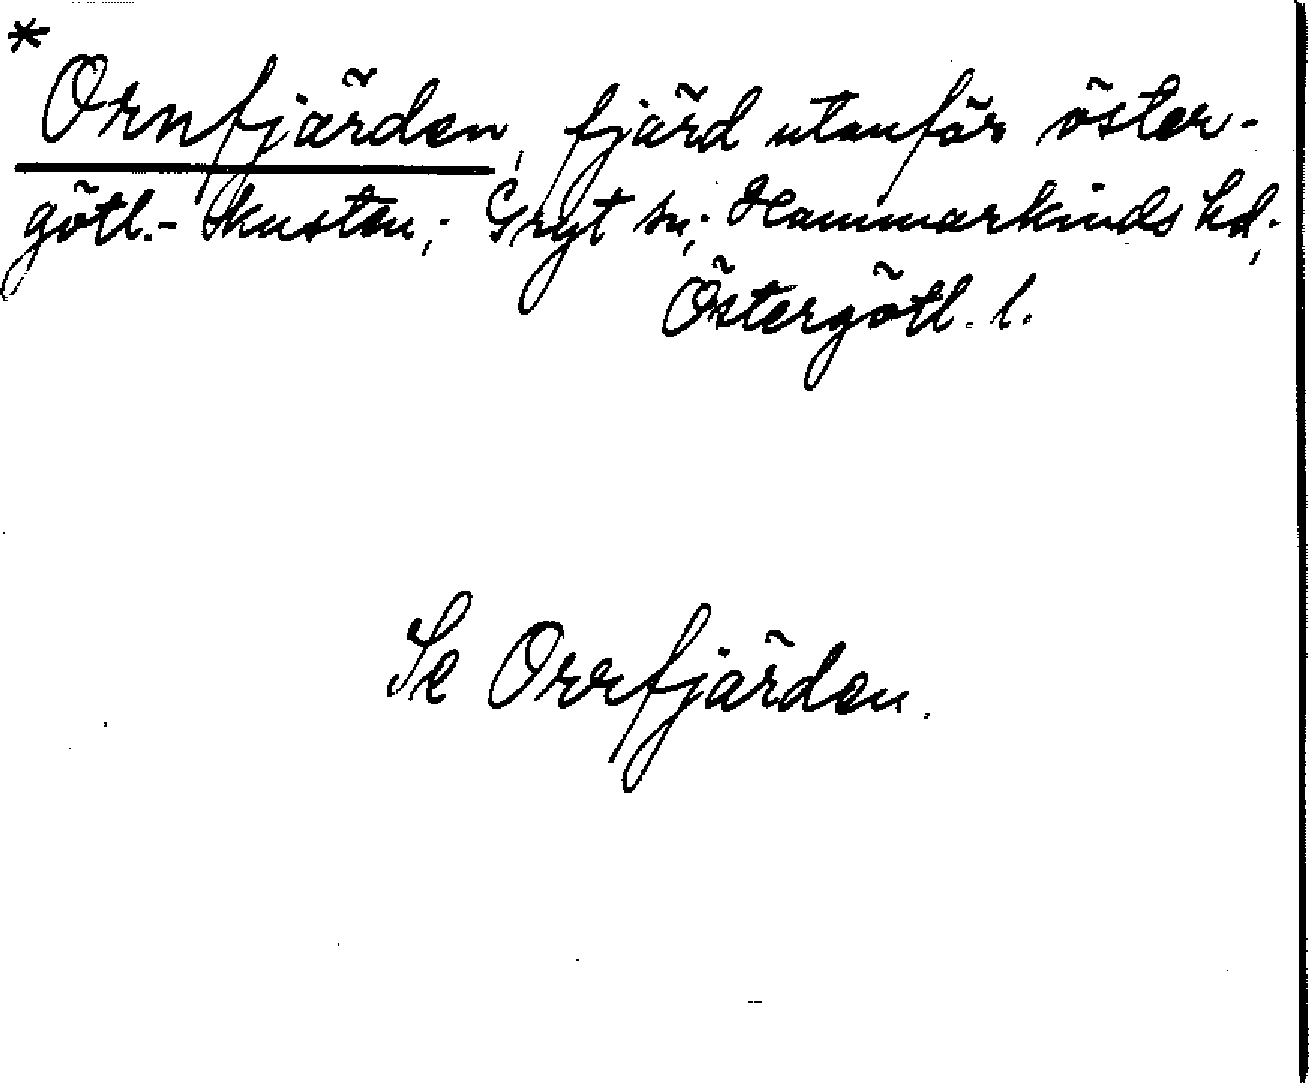 * Ornfjärden, fjärd utanför öster-
götl.-kusten; Gryt sn; Hammarkinds hd,
Östergötl. l.
Se Orrfjärden.